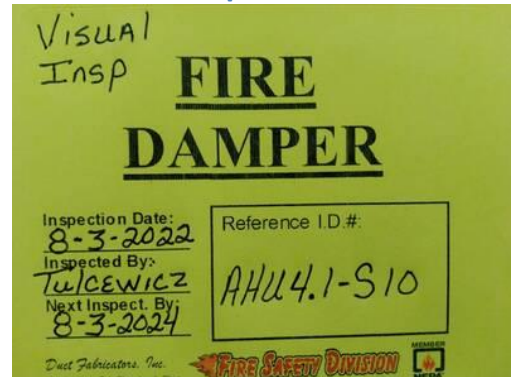 Visual
Insp
FIRE
DAMPER
Inspection Date:
8-3-2022
Inspected By:
Tulcewicz
Next Inspect. By:
8-3-2024
Reference I.D.#:
AHU4.1-S10
Duct Fabricators, Inc.
FIRE SAFETY DIVISION
MEMBER